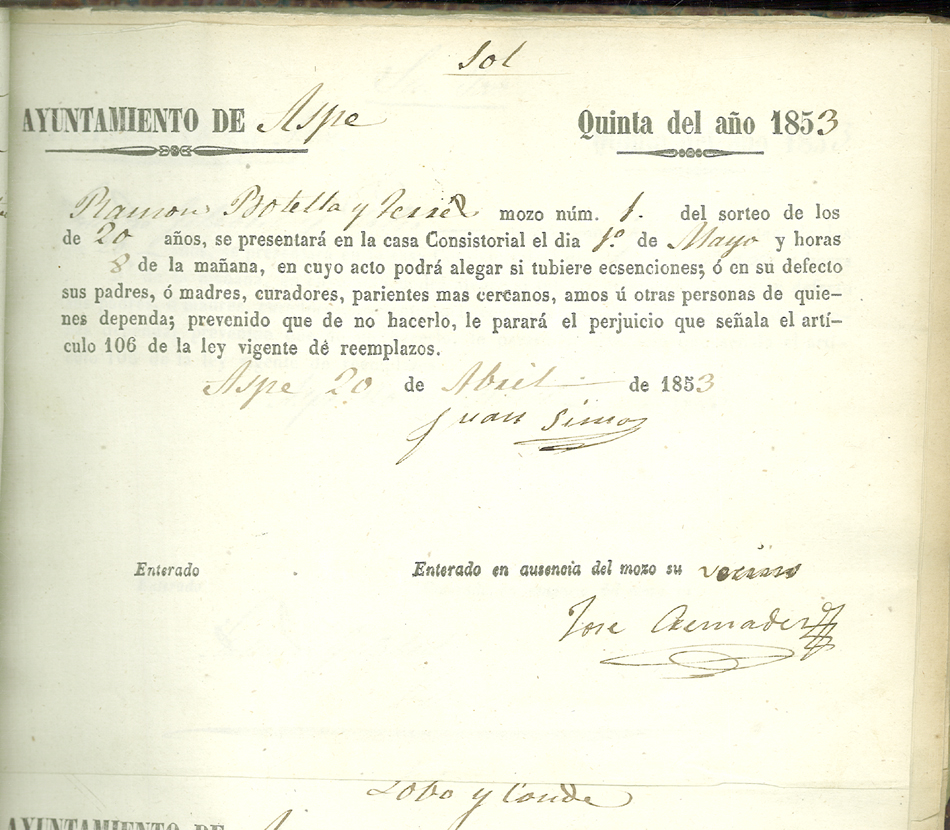 Sol
AYUNTAMIENTO DE Aspe Quinta del año 1853
Ramon Botella y mozo núm. 1. del sorteo de los
de 20 años, se presentará en la casa Consistorial el dia 1.º de Mayo y horas
8 de la mañana, en cuyo acto podrá alegar si tubiere ecsenciones; ó en su defecto
sus padres, ó madres, curadores, parientes mas cercanos, amos ú otras personas de quie–
nes dependa; prevenido que de no hacerlo, le parará el perjuicio que señala el artí–
culo 106 de la ley vigente de reemplazos.
Aspe 20 de Abril de 1853
Juan Simon
Enterado Enterado en ausencia del mozo su vecino
Jose Cremades
Lobo y Conde
AYUNTAMIENTO DE